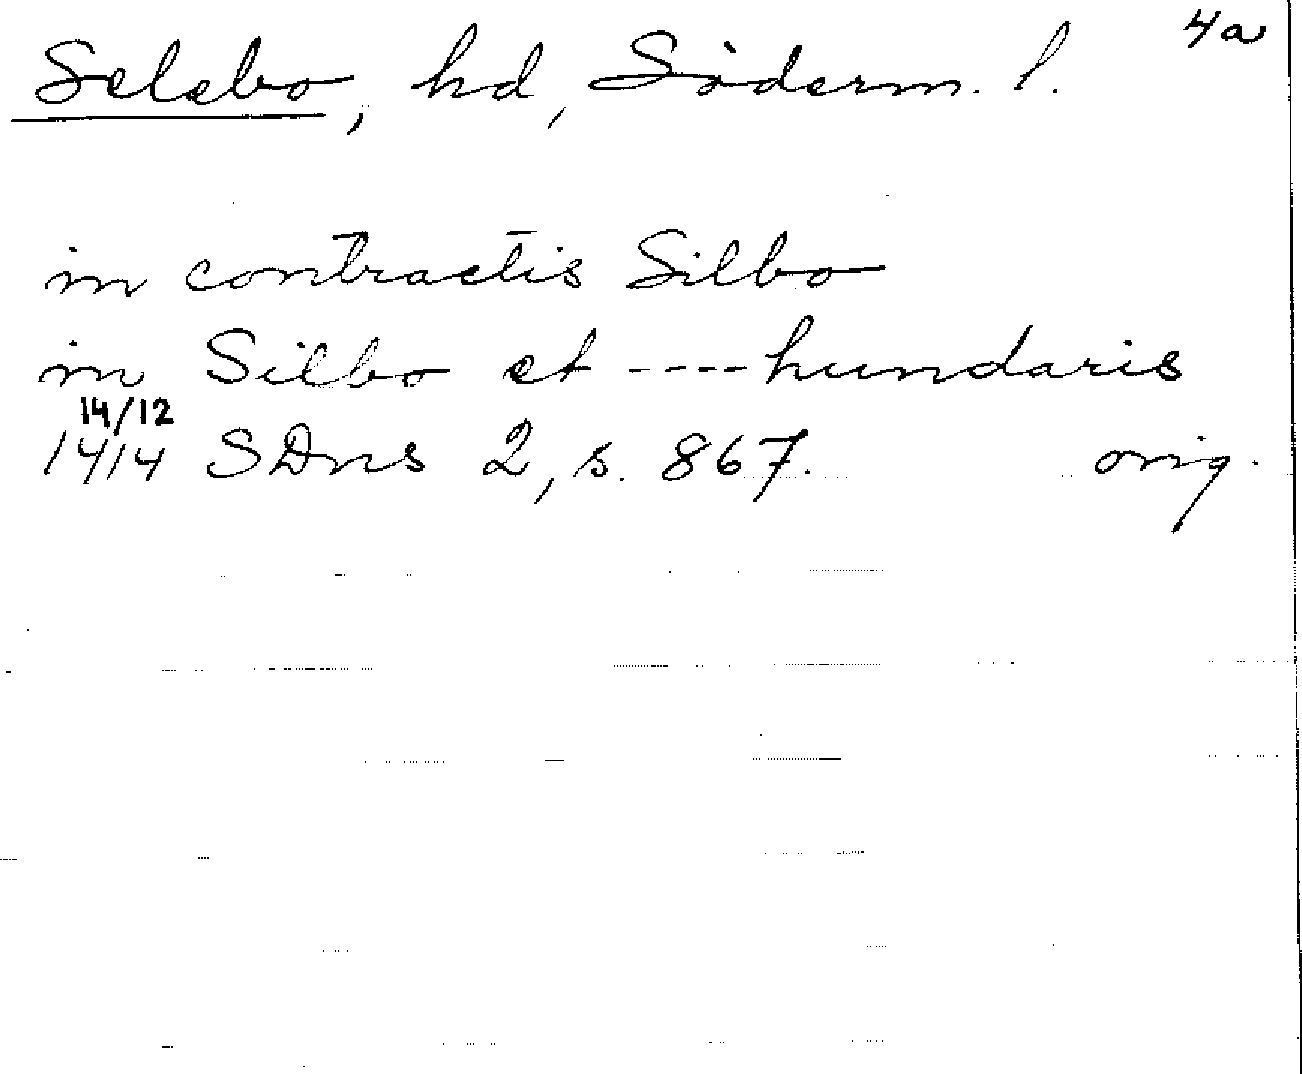 4a
Selebo, hd, Söderm. l.
in contractis Silbo
in Silbo et ---- hundaris
14/12
1414 SDns 2, s. 867. orig.